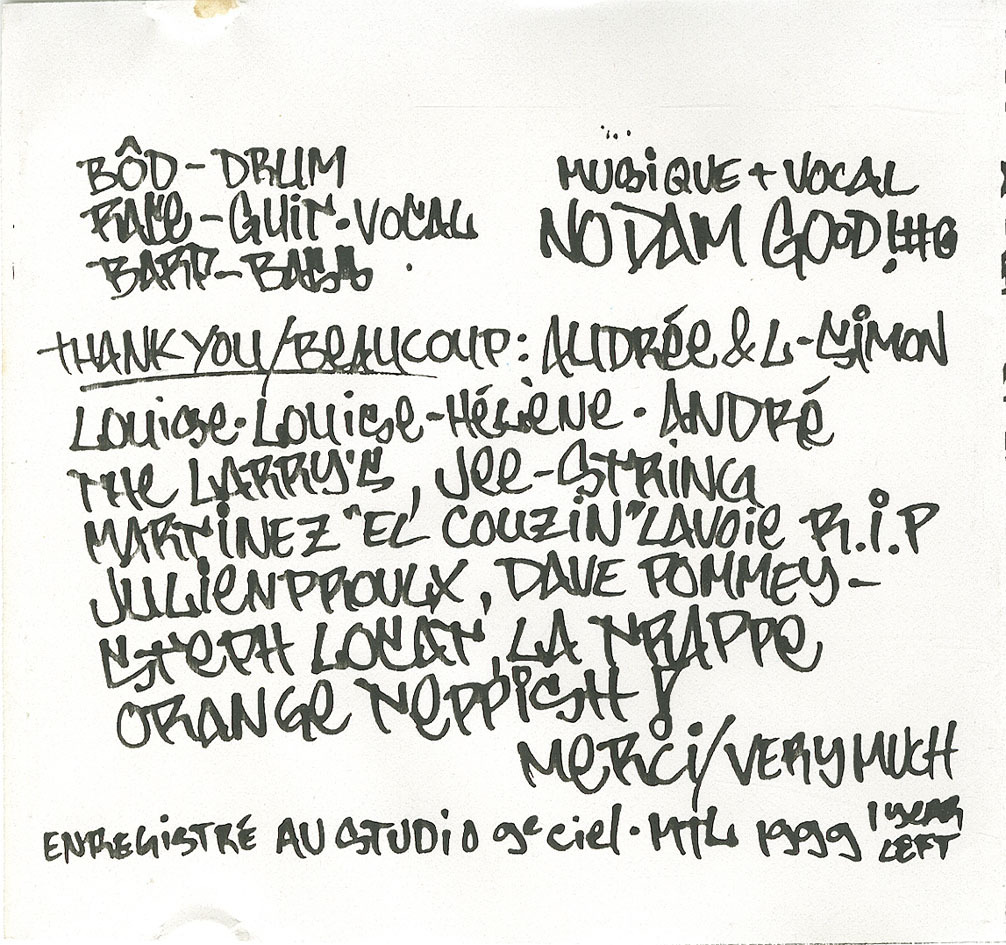 BÔD - DRUM
RACE - GUIT. VOCAL
BARP - BASS
MUSIQUE + VOCAL
NO DAM GOOD!#@
THANK YOU/BEAUCOUP: AUDRÉE & L-SIMON
LOUISE. LOUISE-HÉLÈNE. ANDRÉ
THE LARRY'S, JEE-STRING
MARTINEZ "EL COUZIN" LAVOIE R.I.P
JULIEN PROULX, DAVE POMMEY-
STEPH LOCAT, LA TRAPPE
ORANGE NEPPISH!
MERCI/VERY MUCH
ENREGISTRÉ AU STUDIO 9e ciel. MTL 1999 1 YEAR LEFT